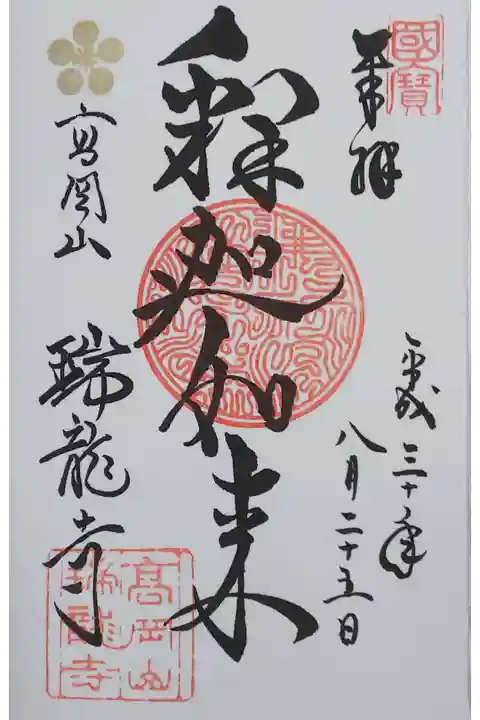 國寶
奉拜
平成三十年
八月二十五日
釋迦如来
高岡山
瑞龍寺
高岡山
瑞龍寺